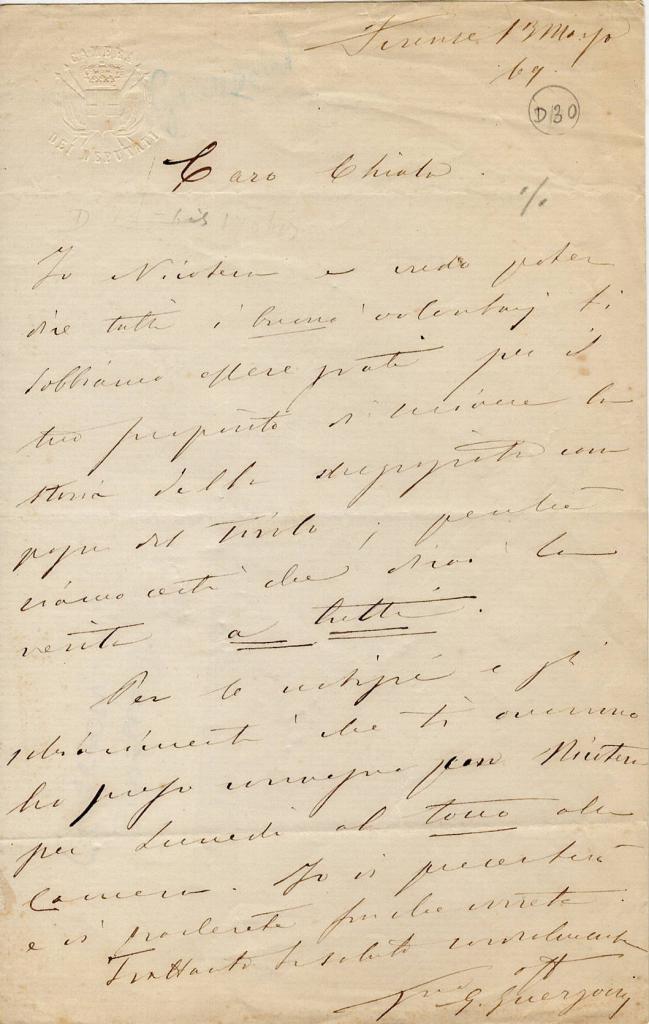 CAMERA
DEI DEPUTATI
Firenze 13 Marzo
69
D130
Caro Chiala.
Io Nicotera e credo poter
dire tutti i buoni volontarj ti
dobbiamo essere grati per il
tuo proposito di scrivere la
storia della campagna
del Tirolo; perchè
siamo certi che dirai la
verità a tutti.
Per le notizie e gli
schiarimenti che ti
ho preso convegno con Nicotera
per Lunedì al tocco alla
Camera. Io vi presenterò
e vi
Frattanto ti saluto cordialmente
Tuo aff
G. Guerzoni